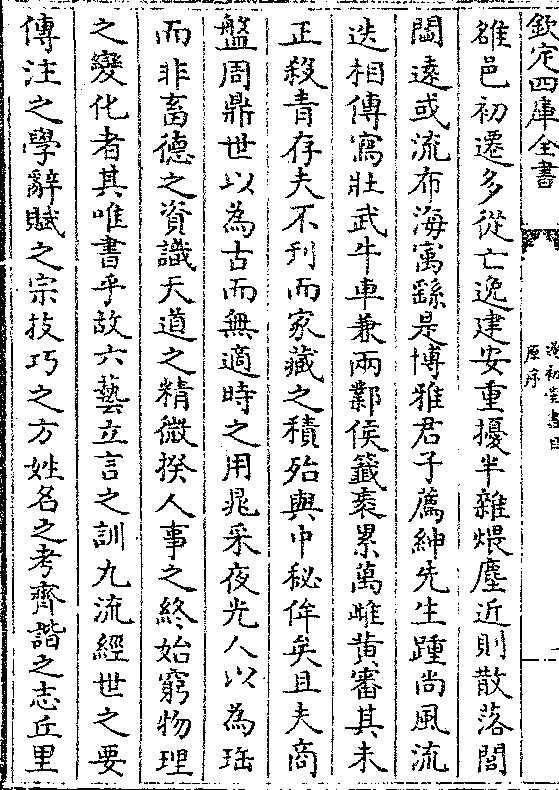 欽定四庫全書
遂初堂書目
原序
雒邑初遷多從亡逸建安重擾半雜煨塵近則散落閻
閩遠或流布海寓繇是博雅君子薦紳先生踵尚風流
迭相傳寫壯武牛車兼兩鄴侯籤袠累萬雌黄審其未
正殺青存夫不刋而家藏之積殆與中秘侔矣且夫商
盤周鼎世以為古而無適時之用鼂采夜光人以為珤
而非畜德之資識天道之精微揆人事之終始窮物理
之變化者其唯書乎故六藝立言之訓九流經世之要
傳注之學辭賦之宗技巧之方姓名之考齊諧之志丘里